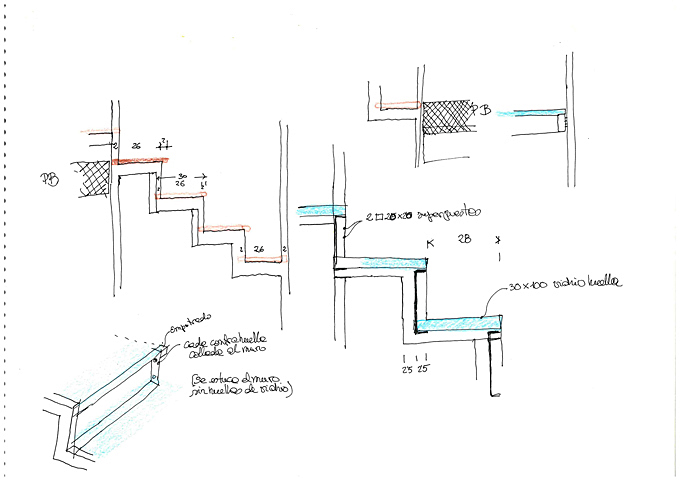 PB
2 26
30
26
2 26 2
PB
2□20x20 superpuestos
28
30x100 vidrio huella
25 25
empotrado
cada contrahuella
collada al muro
(se estuca el muro
sin huellas de vidrio)